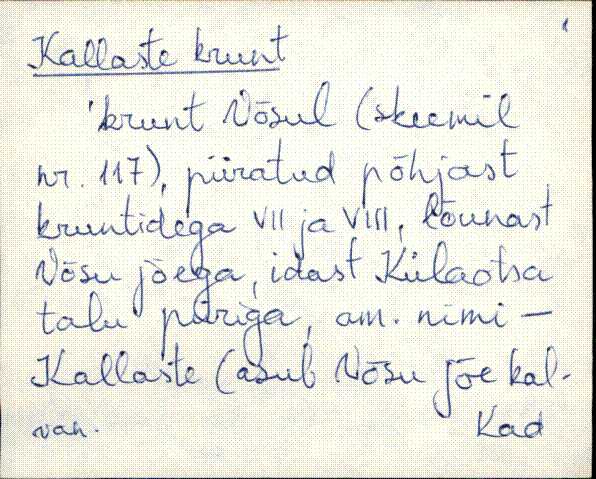 Kallaste krunt
'krunt Võsul (skeemil
nr. 117), piiratud põhjast
kruntidega VII ja VIII, lõunast
Võsu jõega, idast Külaotsa
talu piiriga, am. nimi –
Kallaste (asub Võsu jõe kal-
van. Kad